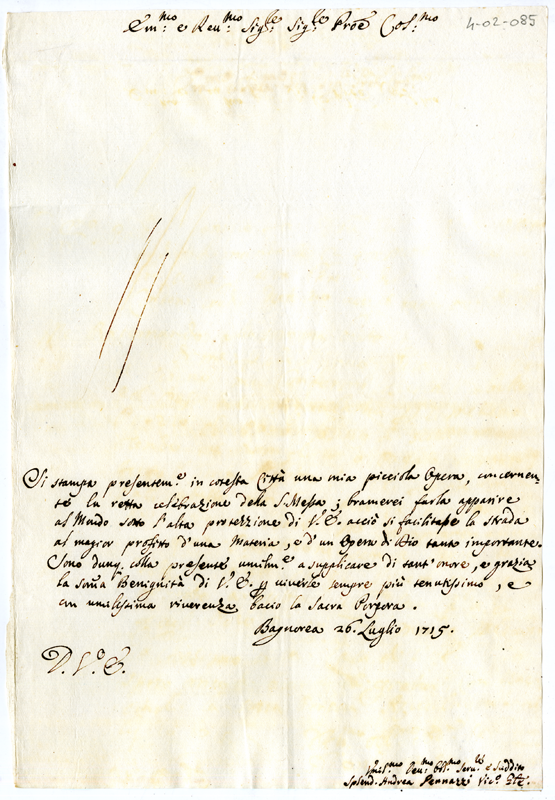 Em:mo e Reu:mo Sig:re Sig:re Prõe Col:mo
4-02-085
Si stampa presentem:e in cotesta Città una mia picciola Opera, concernen-
te la retta celebrazione della S. Messa; bramerei farla apparire
al Mondo sotto l'alta protezzione di V.E. acciò si facilitasse la strada
al magior profitto d'una Materia, e d'un Opera di Dio tanto importante.
Sono dunq. colla presente umilm:e a supplicare di tant'onore, e grazia
la som̃a Benignità di V.E. p viverle sempre più tenutissimo, e
con umilissima riverenza bacio la Sacra Porpora.
Bagnorea 26. Luglio 1715.
D. V.a E.
Umil:mo Deu:mo Obl:mo Seru:re e Suddito
Splend. Andrea Pennazzi Vic.o